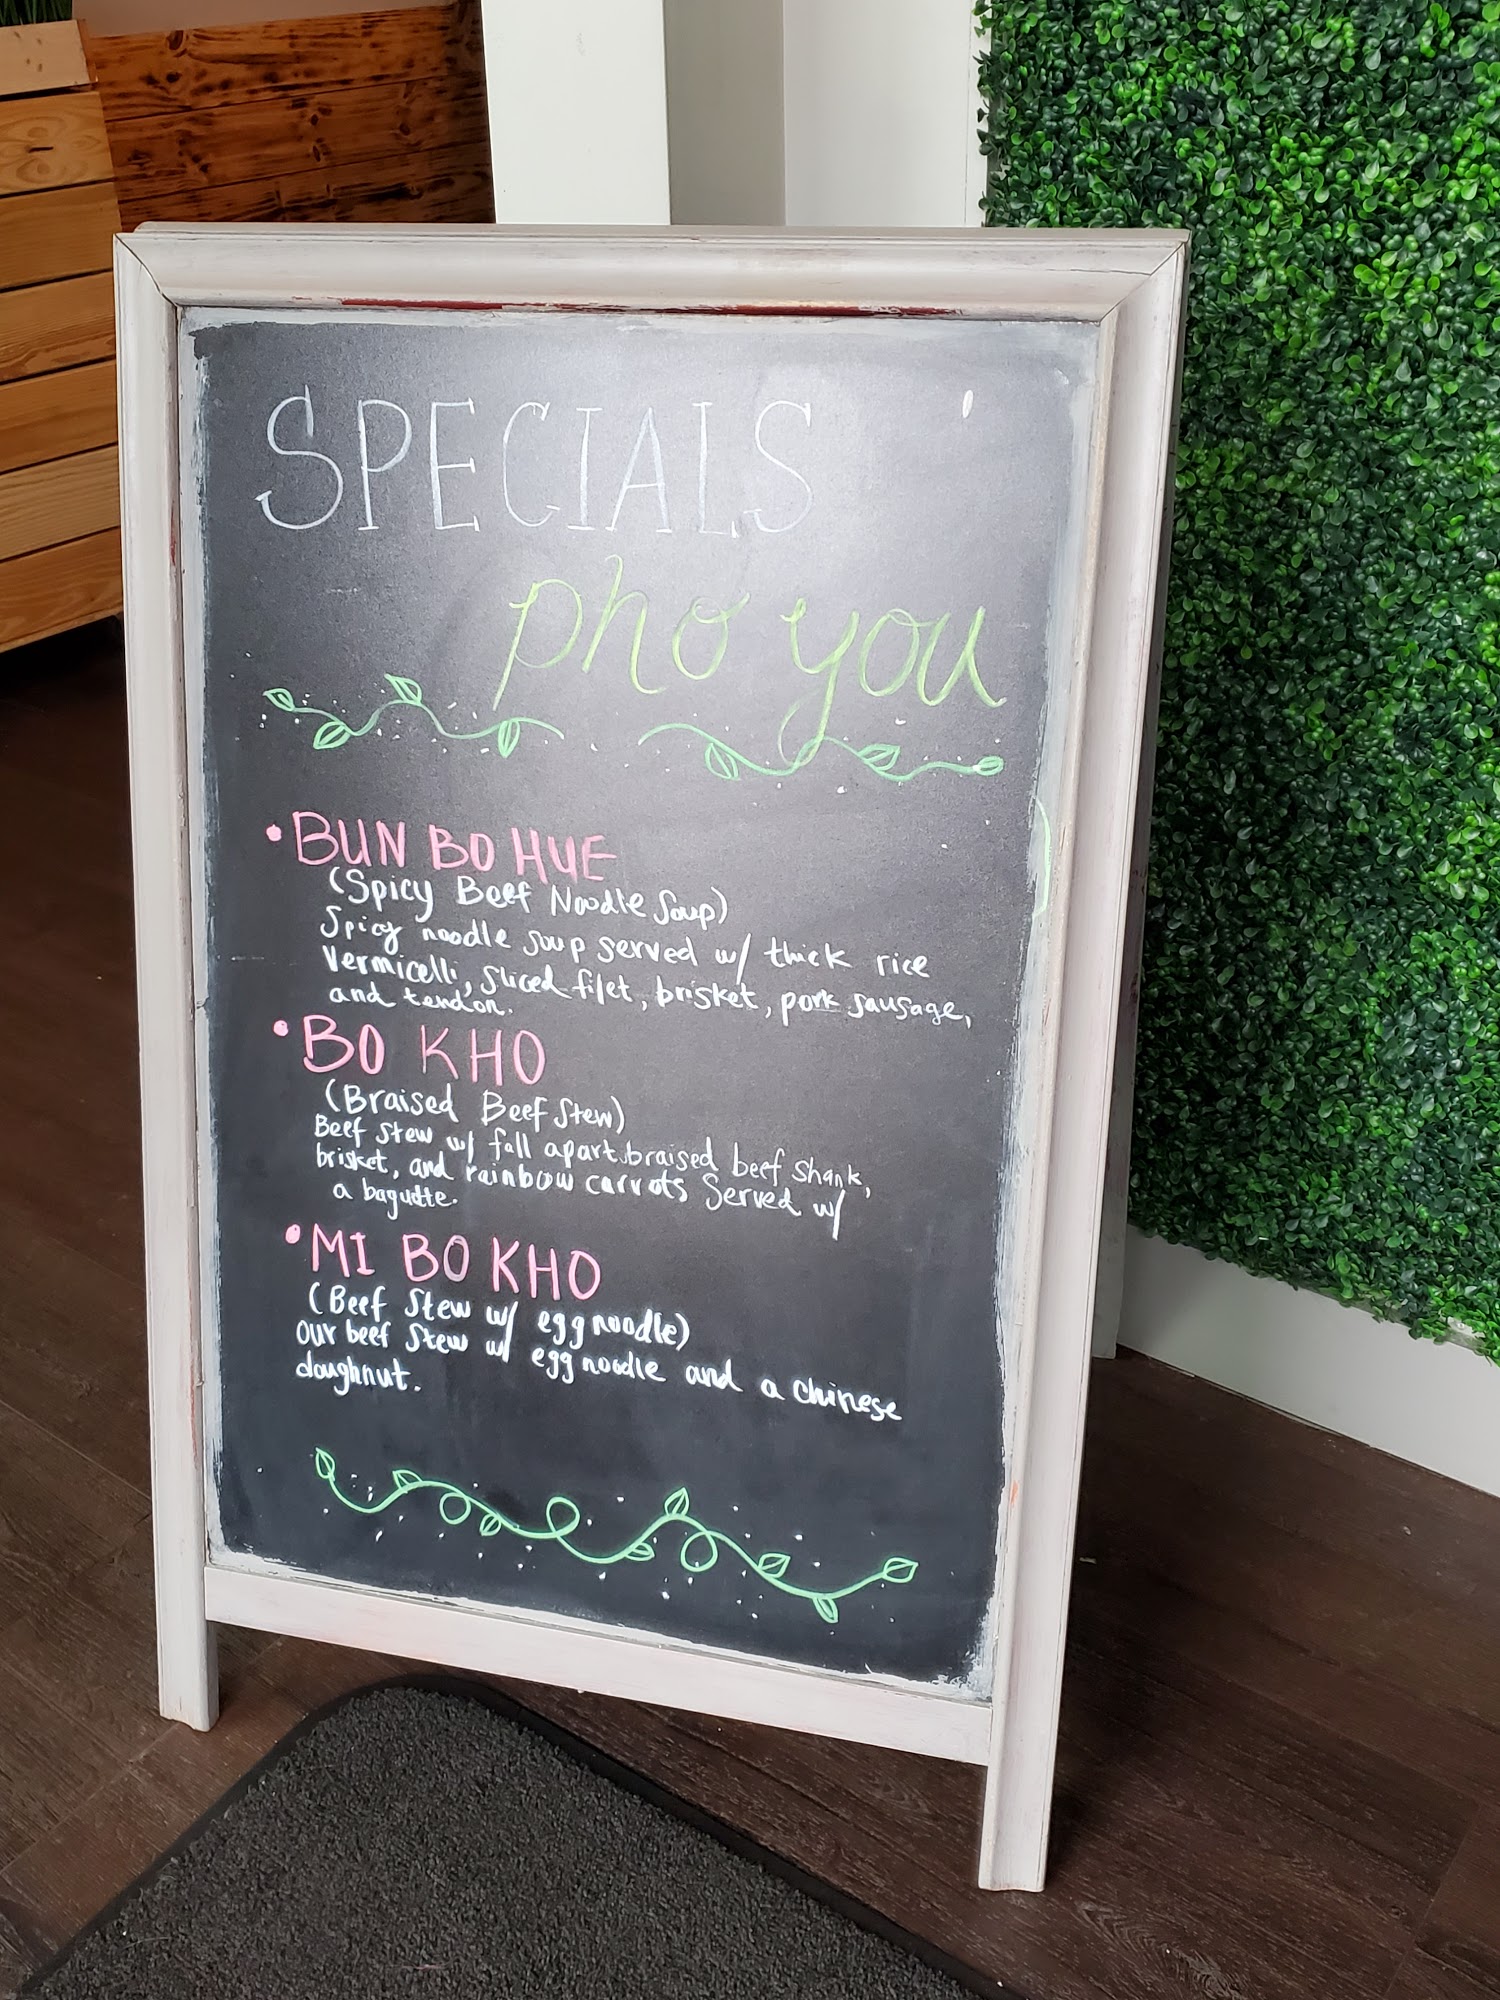 SPECIALS
pho you
• BUN BO HUE
(Spicy Beef Noodle Soup)
Spicy noodle soup served w/ thick rice
Vermicelli, sliced filet, brisket, pork sausage,
and tendon.
• BO KHO
(Braised Beef Stew)
Beef Stew w/ fall apart braised beef shank,
brisket, and rainbow carrots Served w/
a baguette.
• MI BO KHO
(Beef Stew w/ egg noodle)
Our beef Stew w/ egg noodle and a chinese
doughnut.